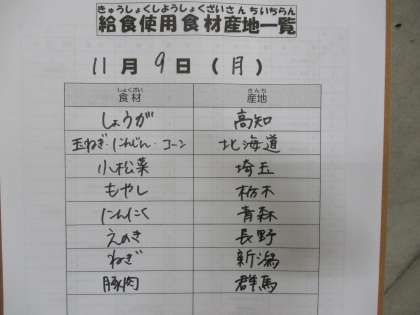 きゅうしょくしようしょくざいさんちいちらん
給食使用食材産地一覧
11月9日(月)
しょくざい さんち
食材 産地
しょうが 高知
玉ねぎ・にんじん・コーン 北海道
小松菜 埼玉
もやし 栃木
にんにく 青森
えのき 長野
ねぎ 新潟
豚肉 群馬